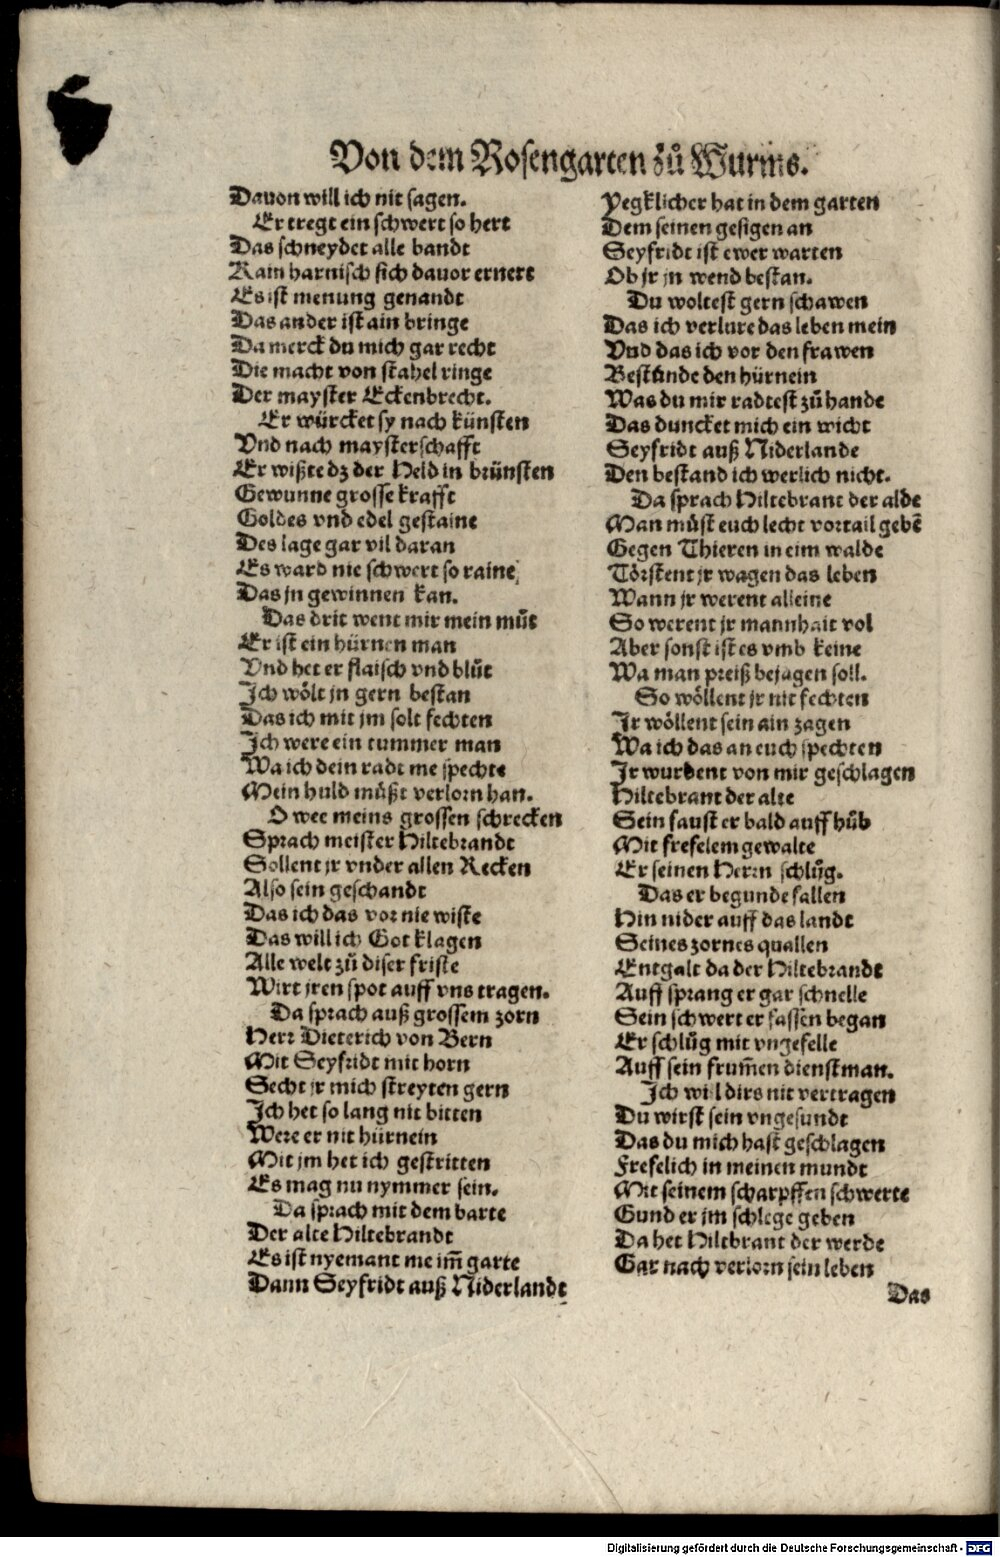 Von dem Rosengarten zů Wurms.
Dauon will ich nit sagen.
Er tregt ein schwert so hert
Das schneydet alle bandt
Kain harnisch sich dauor ernert
Es ist menung genandt
Das ander ist ain bringe
Da merck du mich gar recht
Die macht von stahel ringe
Der mayster Eckenbrecht.
Er würcket sy nach künsten
Vnd nach maysterschafft
Er wißte dz der Held in brünsten
Gewunne grosse krafft
Goldes vnd edel gestaine
Des lage gar vil daran
Es ward nie schwert so raine
Das jn gewinnen kan.
Das drit went mir mein můt
Er ist ein hürnen man
Vnd het er flaisch vnd blůt
Jch wölt jn gern bestan
Das ich mit jm solt fechten
Jch were ein tummer man
Wa ich dein radt me spechte
Mein huld můßt verlorn han.
O wee meins grossen schrecken
Sprach meister Hiltebrandt
Sollent jr vnder allen Recken
Also sein geschandt
Das ich das vor nie wiste
Das will ich Got klagen
Alle welt zů diser friste
Wirt jren spot auff vns tragen.
Da sprach auß grossem zorn
Herr Dieterich von Bern
Mit Seyfridt mit horn
Secht jr mich streyten gern
Jch het so lang nit bitten
Were er nit hürnein
Mit jm het ich gestritten
Es mag nu nymmer sein.
Da sprach mit dem barte
Der alte Hiltebrandt
Es ist nyemant me im̄ garte
Dann Seyfridt auß Niderlandt
Yegklicher hat in dem garten
Dem seinen gesigen an
Seyfridt ist ewer warten
Ob jr jn wend bestan.
Du woltest gern schawen
Das ich verlure das leben mein
Vnd das ich vor den frawen
Bestůnde den hürnein
Was du mir radtest zů hande
Das duncket mich ein wicht
Seyfridt auß Niderlande
Den bestand ich werlich nicht.
Da sprach Hiltebrant der alde
Man můst euch lecht vortail gebē
Gegen Thieren in eim walde
Törstent jr wagen das leben
Wann jr werent alleine
So werent jr mannhait vol
Aber sonst ist es vmb keine
Wa man preiß bejagen soll.
So wöllent jr nit fechten
Jr wöllent sein ain zagen
Wa ich das an euch spechten
Jr wurdent von mir geschlagen
Hiltebrant der alte
Sein faust er bald auff hůb
Mit frefelem gewalte
Er seinen Herrn schlůg.
Das er begunde fallen
Hin nider auff das landt
Seines zornes quallen
Entgalt da der Hiltebrandt
Auff sprang er gar schnelle
Sein schwert er fassen began
Er schlůg mit vngefelle
Auff sein frum̄en dienstman.
Jch will dirs nit vertragen
Du wirst sein vngesundt
Das du mich hast geschlagen
Frefelich in meinen mundt
Mit seinem scharpffen schwerte
Gund er jm schlege geben
Da het Hiltbrant der werde
Gar nach verlorn sein leben
Das
Digitalisierung gefördert durch die Deutsche Forschungsgemeinschaft - DFG